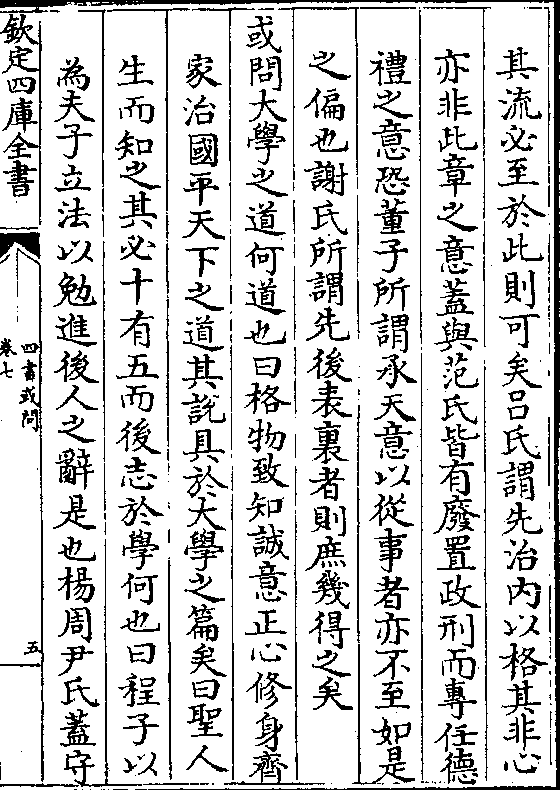 其流必至於此則可矣吕氏謂先治内以格其非心
亦非此章之意蓋與范氏皆有廢置政刑而專任德
禮之意恐董子所謂承天意以從事者亦不至如是
之偏也謝氏所謂先後表裏者則庶幾得之矣
或問大學之道何道也曰格物致知誠意正心修身齊
家治國平天下之道其說具於大學之篇矣曰聖人
生而知之其必十有五而後志於學何也曰程子以
為夫子立法以勉進後人之辭是也楊周尹氏蓋守
欽定四庫全書
四書或問
卷七
五